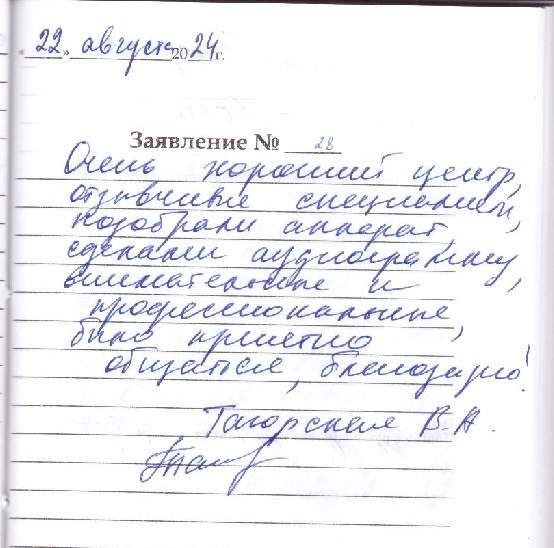 22 » августа 2024 г.
Заявление № 28
Очень хороший центр,
отзывчивые специалисты,
подобрали аппарат,
сделали аудиограмму,
внимательные и
профессиональные,
было приятно
общаться, благодарю!
В. А.